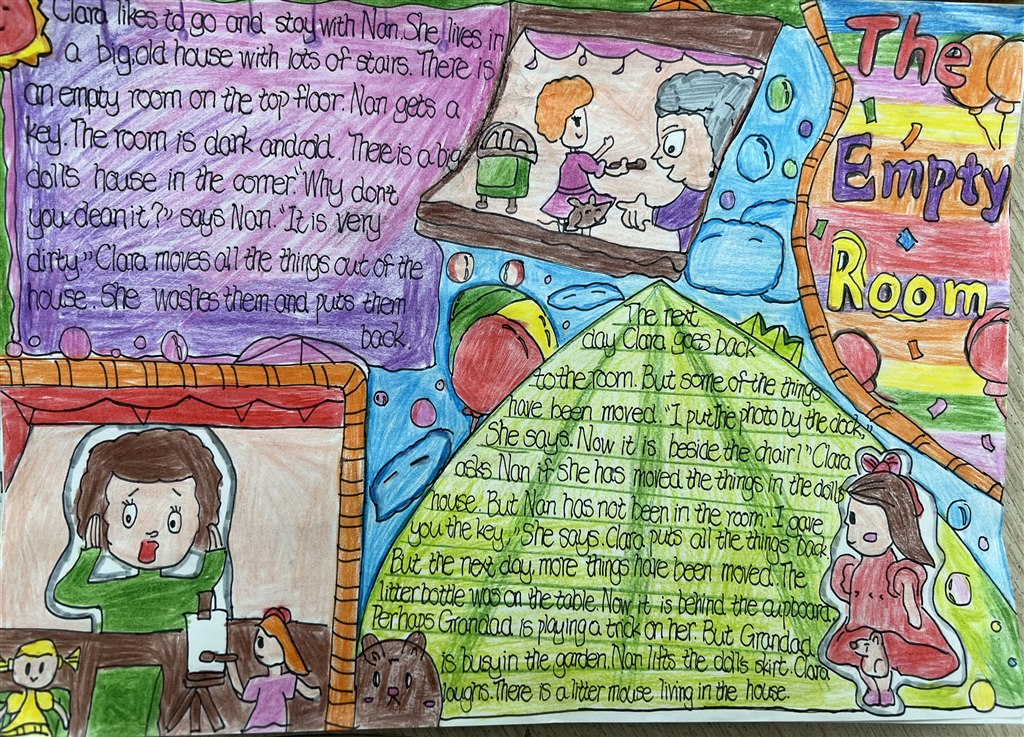 The
Empty
Room
Clara likes to go and stay with Nan. She lives in
a big, old house with lots of stairs. There is
an empty room on the top floor. Nan gets a
key. The room is dark and old. There is a big
doll's house in the corner. "Why don't
you clean it?" says Nan. "It is very
dirty." Clara moves all the things out of the
house. She washes them and puts them
back.
The next
day Clara goes back
to the room. But some of the things
have been moved. "I put the photo by the clock,"
She says. Now it is beside the chair!" Clara
asks Nan if she has moved the things in the doll's
house. But Nan has not been in the room. "I gave
you the key," She says. Clara puts all the things back
But the next day, more things have been moved. The
litter bottle was on the table. Now it is behind the cupboard.
Perhaps Grandad is playing a trick on her. But Grandad
is busy in the garden. Nan lifts the doll's skirt. Clara
laughs. There is a litter mouse living in the house.